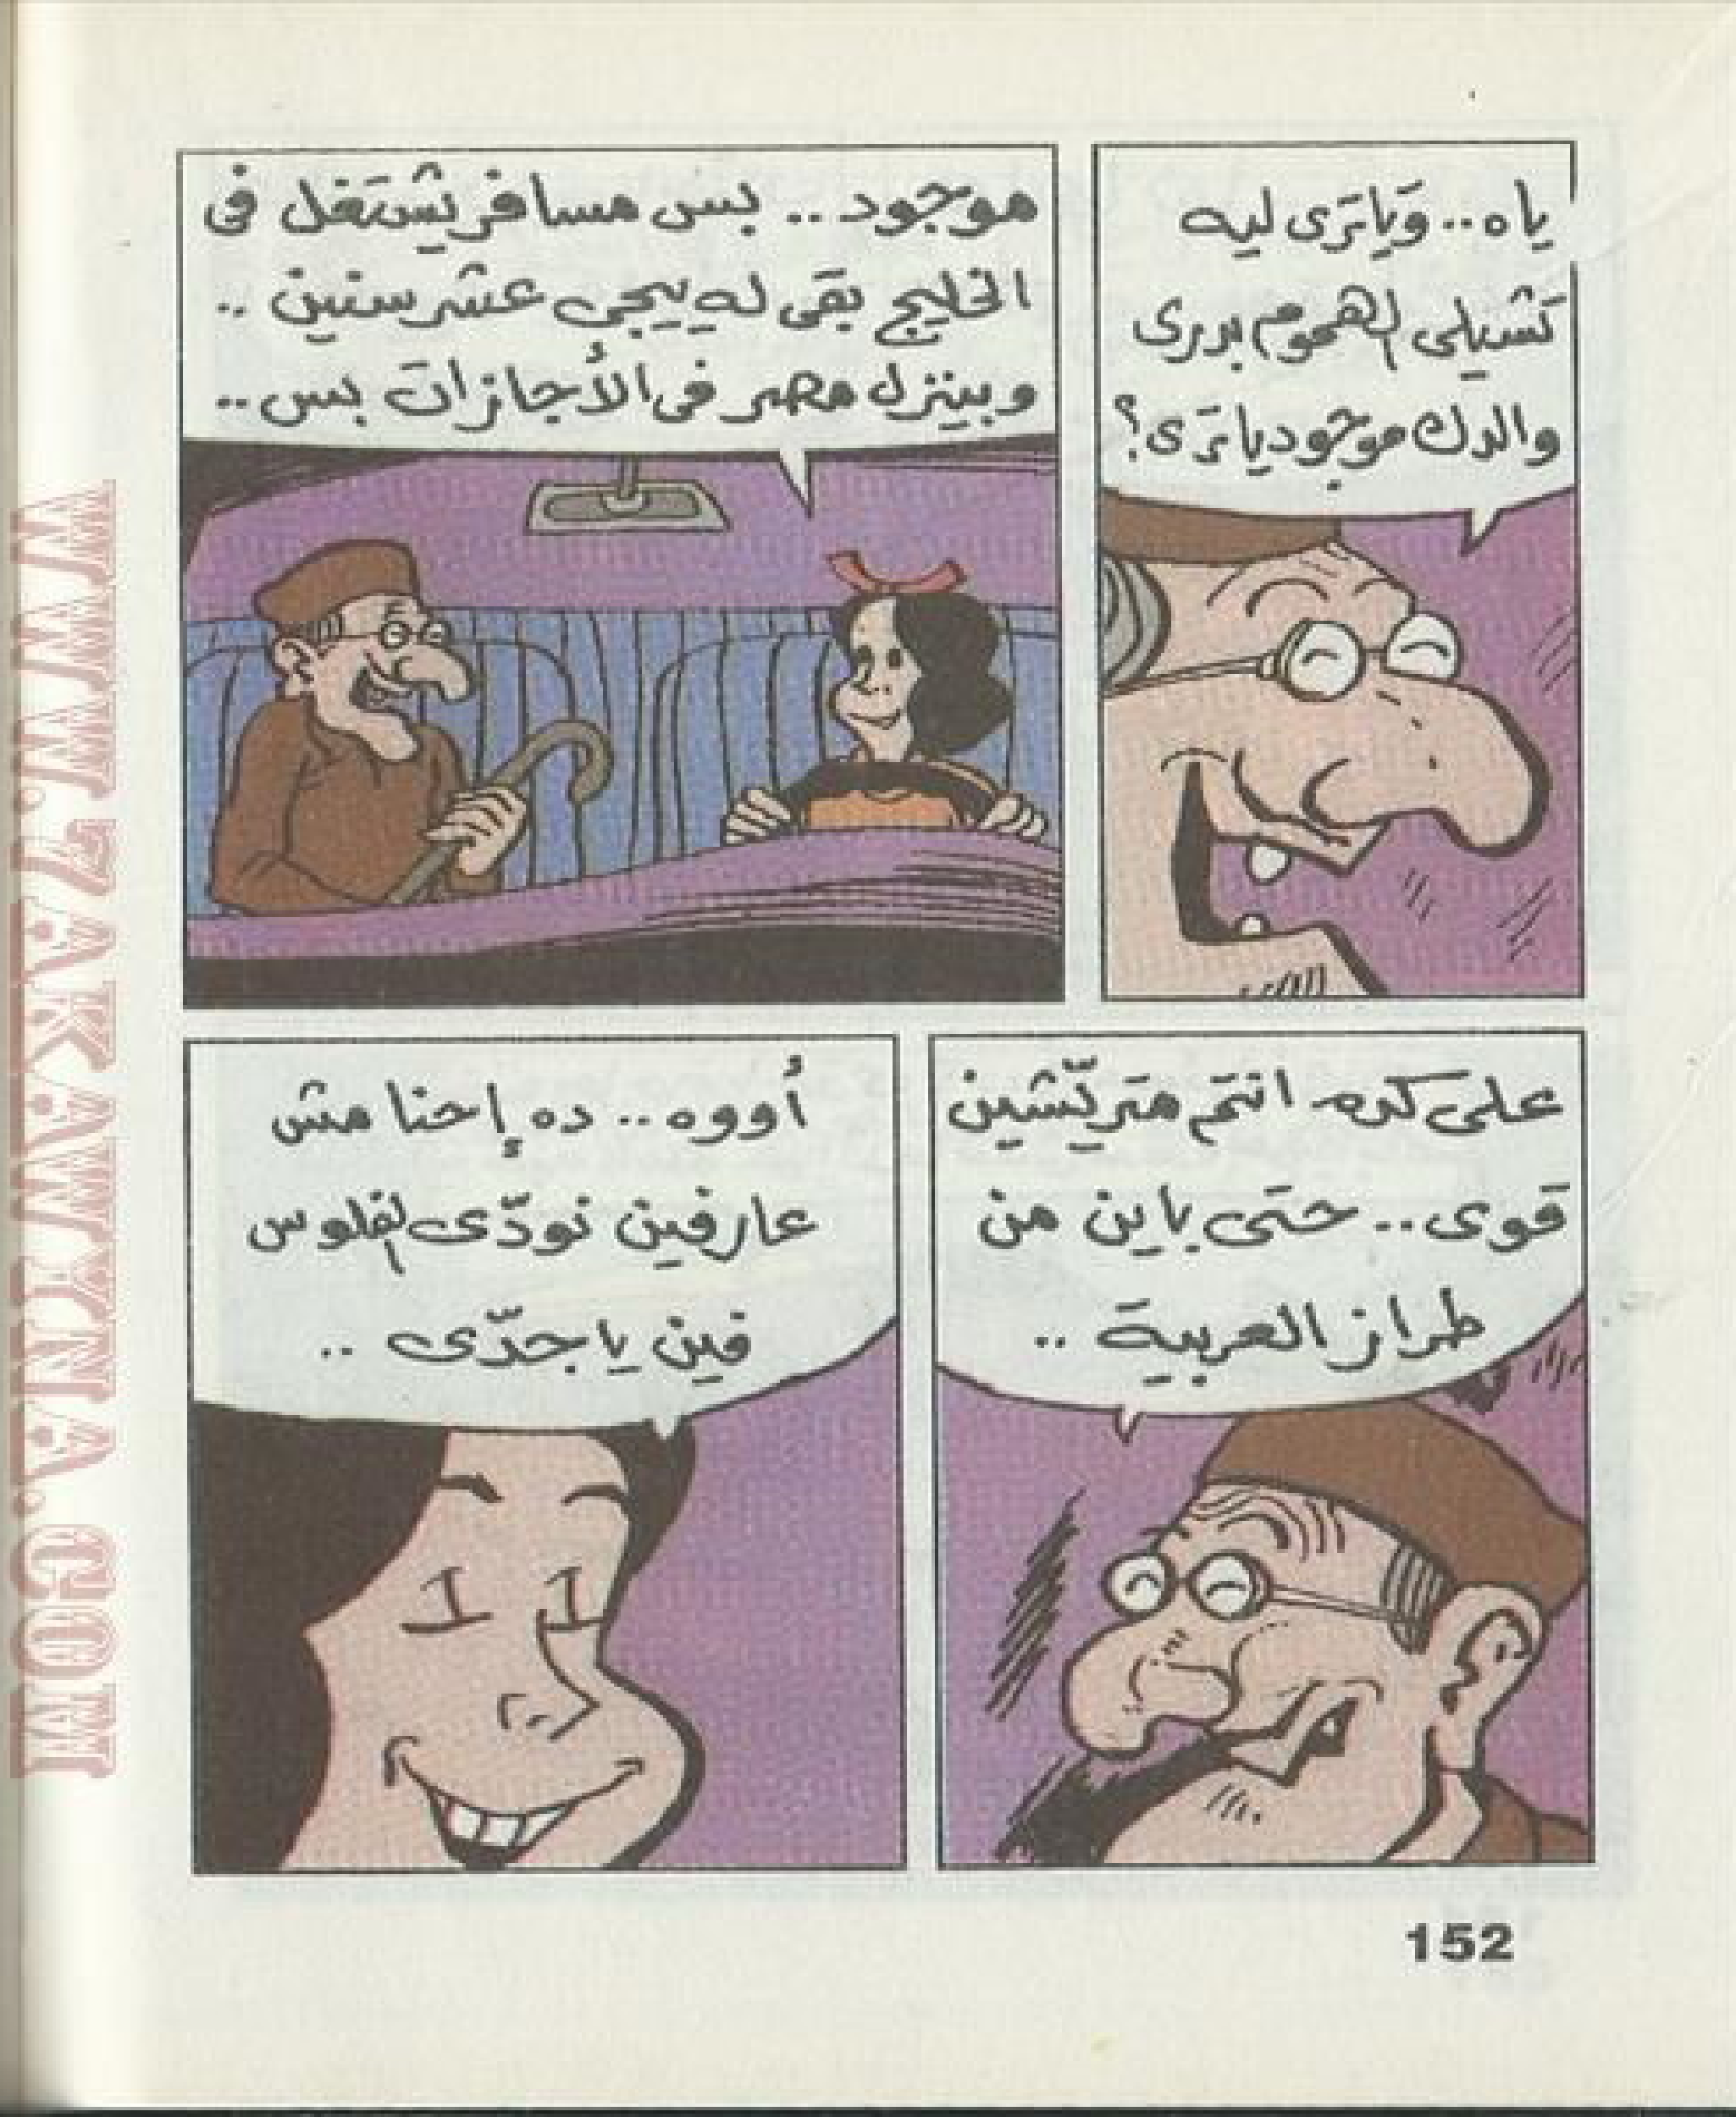 ياه.. وَياتَرَى ليه
تشيلى الهموم بدرى
والدك موجود ياترَى؟
موجود.. بس مسافر يشتغل فى
الخليج بقى له ييجى عشر سنين ..
وبينزل مصر فى الأجازات بس..
على كده انتم متريّشين
قوى.. حتى باين من
طراز العربية ..
أووه.. ده إحنا مش
عارفين نودّى الفلوس
فين ياجدّى ..
152
WWW.7AKAWINA.COM